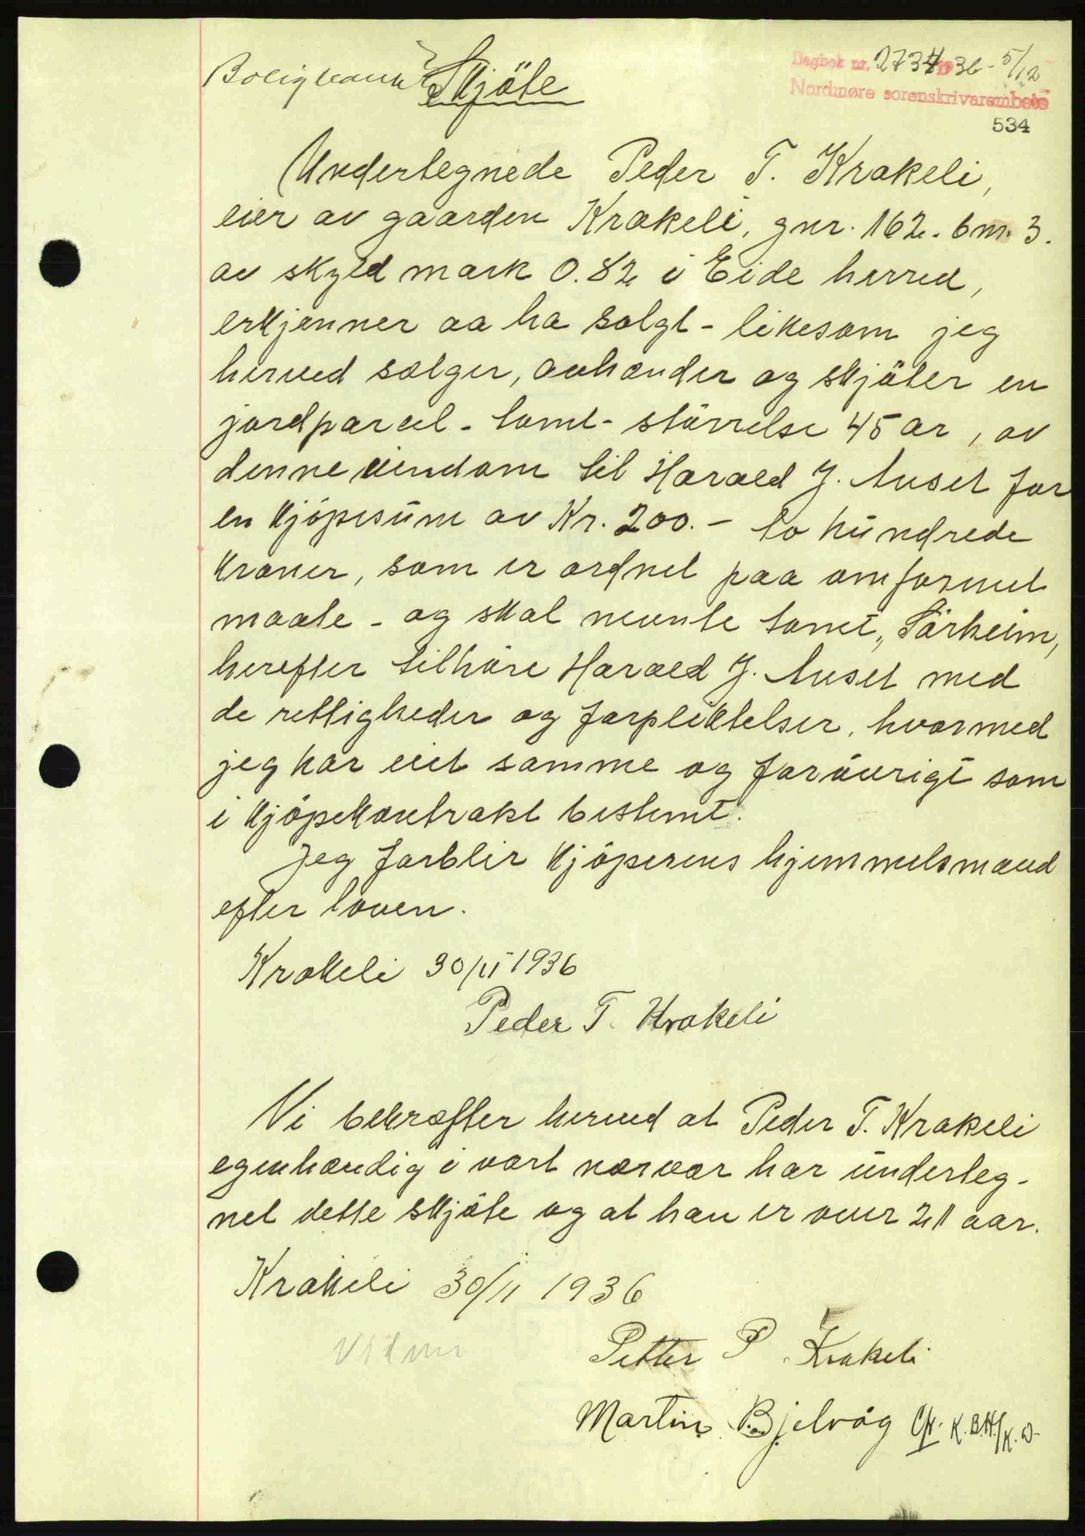 Dagbok nr. 2734 1936 - 5/12
Nordmøre sorenskrivarembete
534
Boligbank
Skjöte
Undertegnede Peder T. Krakeli,
eier av gaarden Krakeli, gnr. 162. bnr. 3.
av skyld mark 0.82 i Eide herred,
erkjenner aa ha solgt - likesom jeg
herved sælger, avhænder og skjöter en
jordparcel - tomt - störrelse 45 ar, av
denne eiendom til Harald J. Auset for
en kjöpesum av Kr. 200.- to hundrede
kroner, som er ordnet paa omforenet
maate - og skal nevnte tomt, "Sörheim,
herefter tilhöre Harald J. Auset med
de rettigheder og forpliktelser, hvormed
jeg har eiet samme og forövrigt som
i kjöpekontrakt bestemt.
Jeg forblir kjöperens hjemmelsmand
efter loven.
Krakeli 30/11 1936
Peder T. Krakeli
Vi bekræfter herved at Peder T. Krakeli
egenhændig i vort nærvær har underteg-
net dette skjöte og at han er over 21 aar.
Krakeli 30/11 1936
Petter P. Krakeli
Martin Bjelvåg
K.B.H/K.D.